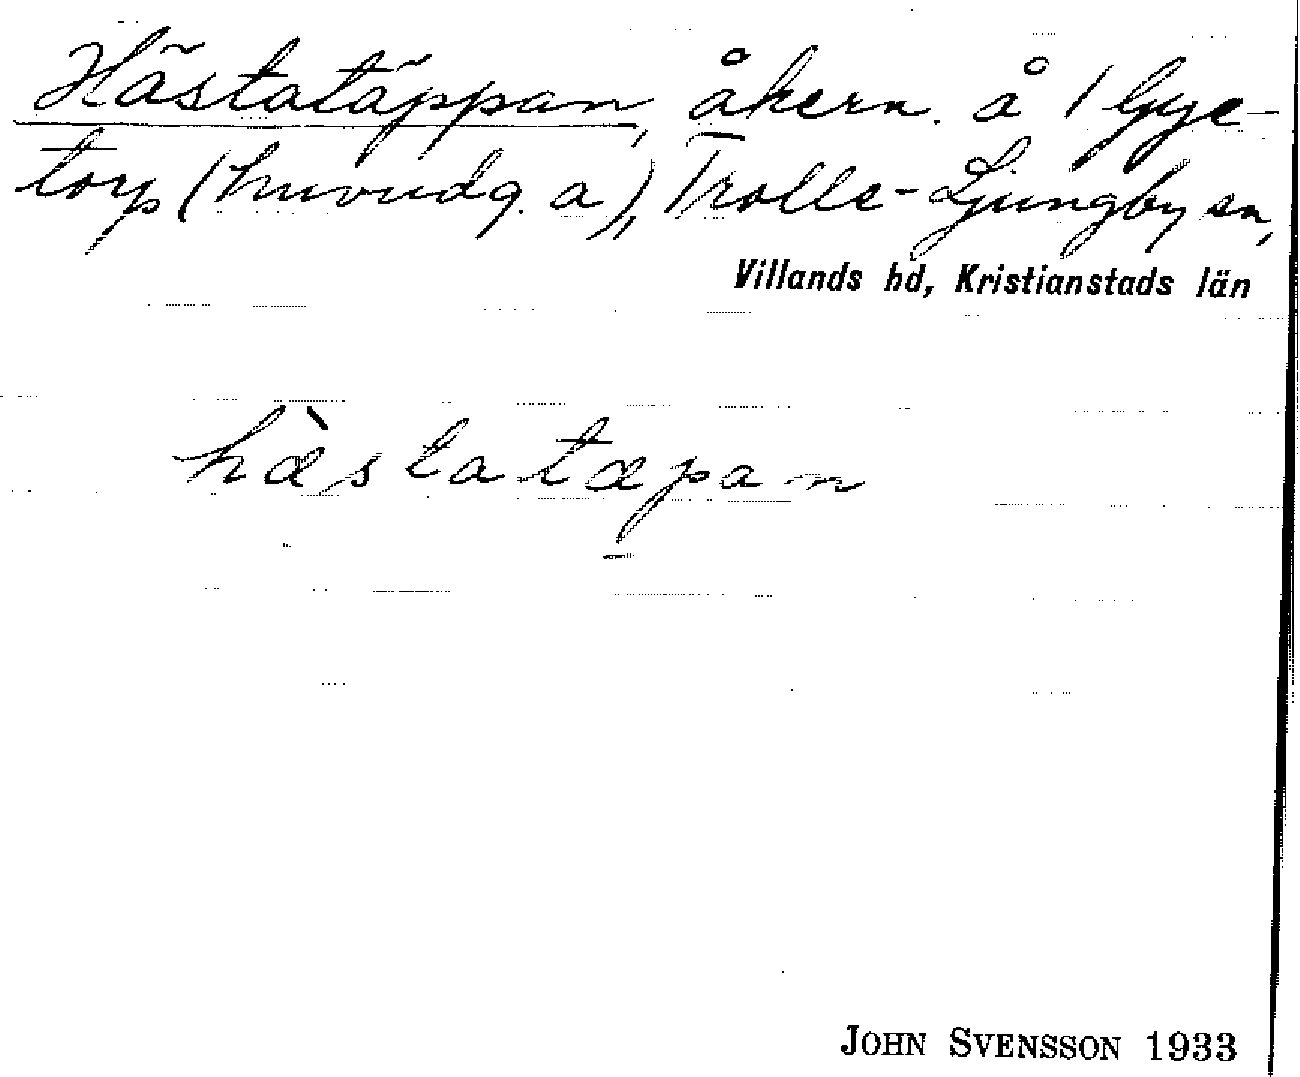 Hästatäppan, åkern. å 1 Gye-
torp (huvudg. a), Trolle-Ljungby sn,
Villands hd, Kristianstads län
hæ̀statæpan
JOHN SVENSSON 1933